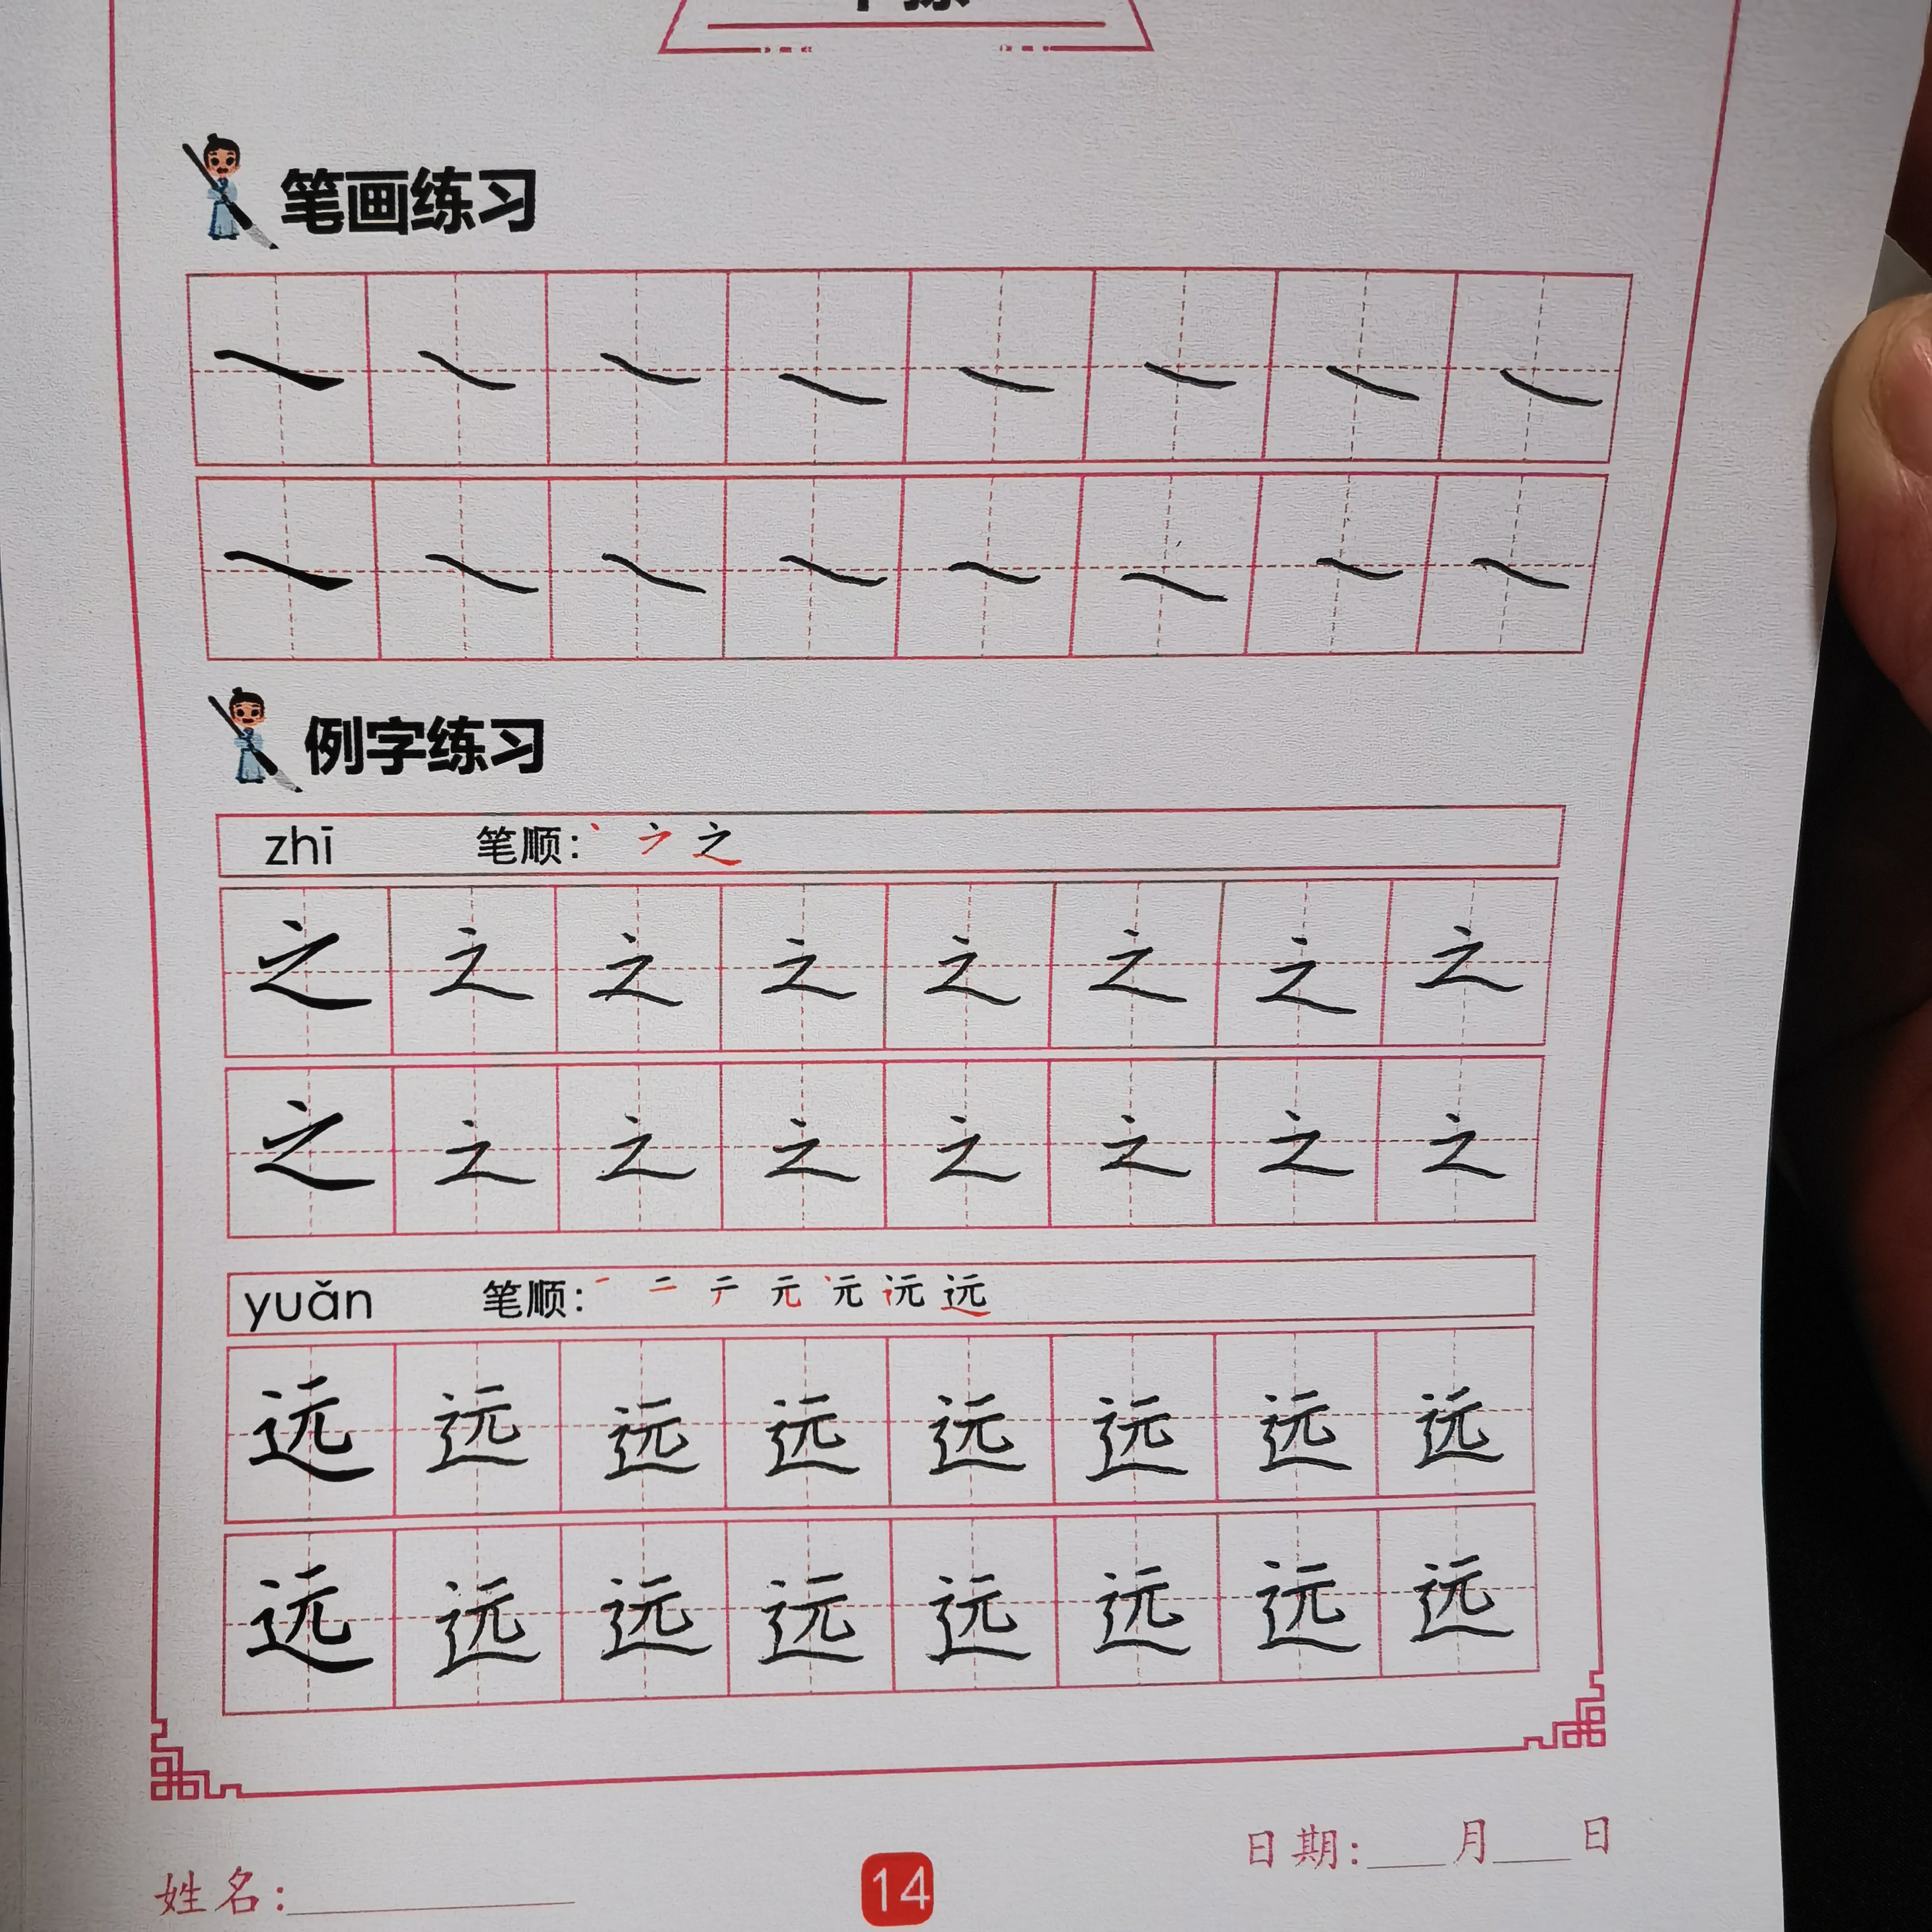 笔画练习
例字练习
zhī 笔顺: 丶 ㇇ 之
之 之 之 之 之 之 之 之
之 之 之 之 之 之 之 之
yuǎn 笔顺: 一 二 テ 元 远
远 远 远 远 远 远 远 远
远 远 远 远 远 远 远 远
姓名:
14
日期: 月 日